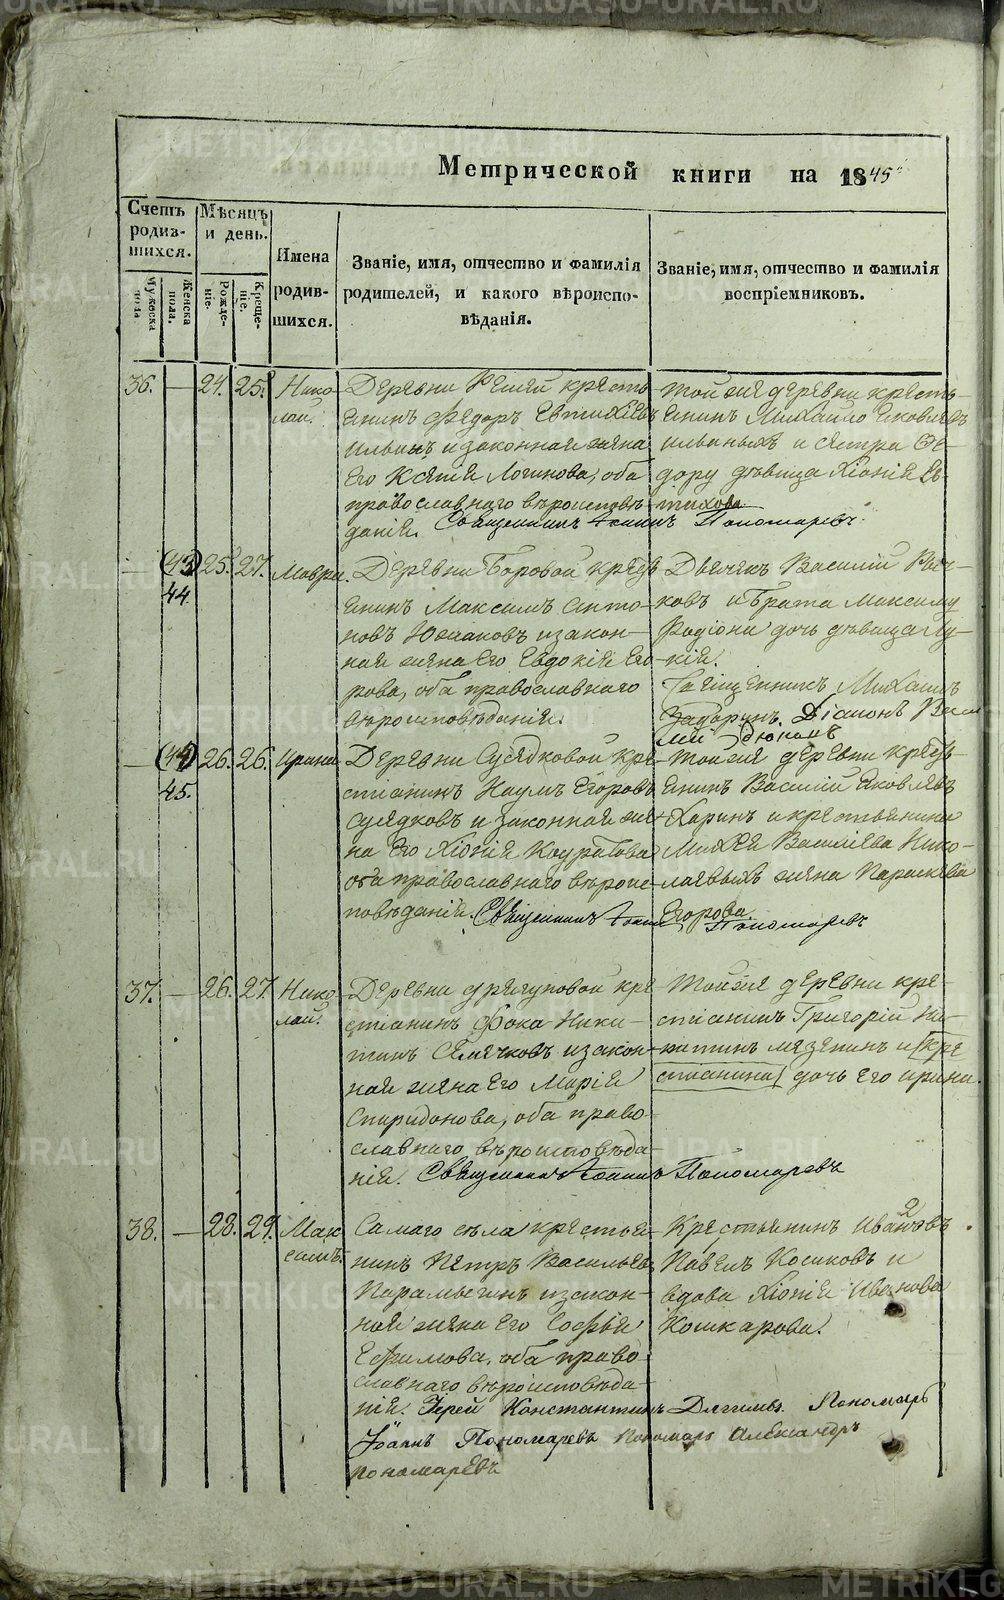 METRIKI.GASO-URAL.RU
Метрической книги на 1845
Счетъ родив- шихся.
Мѣсяцъ и день.
Имена родив- шихся.
Званіе, имя, отчество и фамилія
родителей, и какого вѣроиспо-
вѣданія.
Званіе, имя, отчество и фамилія
воспріемниковъ.
Мужеска пола
Женска пола.
Рожде- ніе.
Креще- ніе.
36. — 24. 25. Нико-
лай.
Деревни крестъ-
янинъ Федоръ Евтихіевъ
Ильинъ и законная жена
его Ксенія Логинова, оба
православнаго вѣроисповѣ-
данія. Священникъ Іоаннъ Пономаревъ.
Той же деревни кресть-
янинъ Михайло Яковлевъ
Ильиныхъ и сестра Ѳе-
дору дѣвица Хіонія Ев-
тихова
— (43) 44. 25. 27. Мавра.
Деревни Боровой кресть-
янинъ Максимъ Анто-
новъ Южаковъ и закон-
ная жена его Евдокія Его-
рова, оба православнаго
вѣроисповѣданія.
Дьячекъ Василій
ковъ и брата Максиму
Родіона дочь дѣвица Лу-
кія.
Священникъ Михаилъ
Задоринъ. Діаконъ Васи
лій
— (44) 45. 26. 26. Ирина
Деревни Сусядковой кре-
стіанинъ Наумъ Егоровъ
Сусядковъ и законная же-
на его Хіонія Кодратова
оба православнаго вѣроис-
повѣданія. Священникъ Іоаннъ Пономаревъ
Той же деревни кресть-
янинъ Василій Яковлевъ
Харинъ и крестьянина
Михея Василіева Нико-
лаевыхъ жена Параскева
Егорова.
37. — 26. 27. Нико-
лай.
Деревни кре-
стіанинъ Фока Ники-
тинъ и закон-
ная жена его Марія
Спиридонова, оба право-
славнаго вѣроисповѣда-
нія. Священникъ Іоаннъ Пономаревъ
Той же деревни кре-
стіанинъ Григорій Ни-
китинъ Мезенинъ и (кре
стіанина) дочь его Ирина.
38. — 28. 29. Мак-
симъ.
Самаго села крестья-
нинъ Петръ Васильевъ
и закон-
ная жена его Софья
Ефимова, оба право-
славнаго вѣроисповѣда-
нія. Іерей Константинъ Пономарь
Іоаннъ Пономаревъ Пономарь Александръ
Пономаревъ
Крестьянинъ Ивановъ
Павелъ Косиковъ и
вдова Хіонія Иванова
Кошкарова.